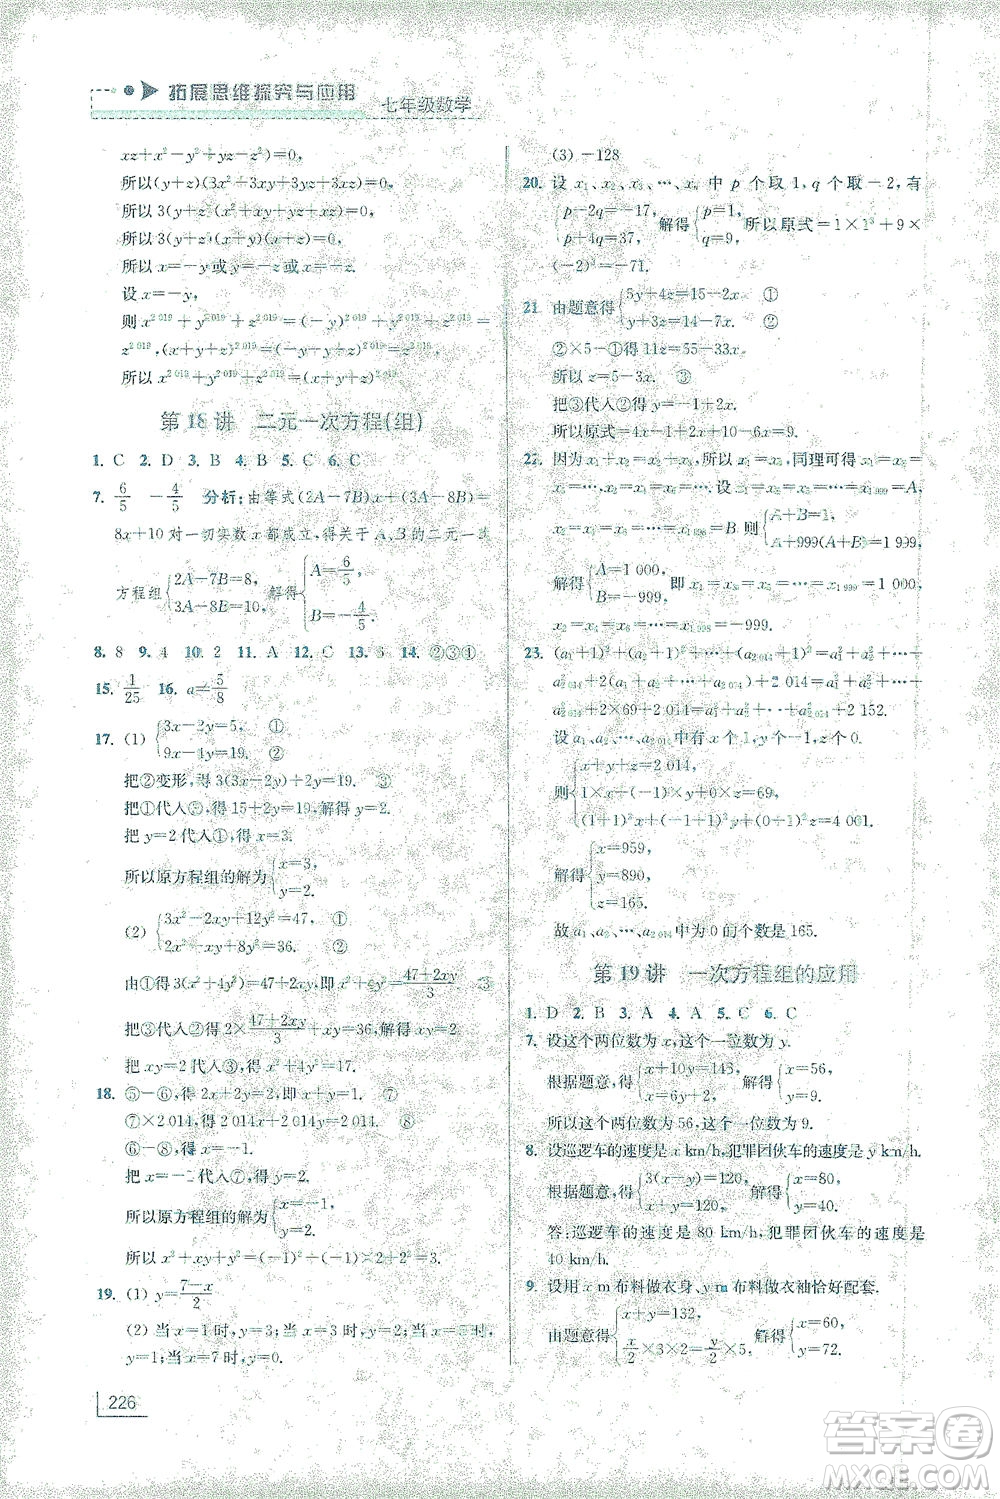 拓展思维探究与应用
七年级数学
xz+x²−y²+yz−z²)=0,
所以(y+z)(3x²+3xy+3yz+3xz)=0,
所以 3(y+z)(x²+xy+yz+xz)=0,
所以 3(y+z)(x+y)(x+z)=0,
所以 x=−y 或 y=−z 或 x=−z.
设 x=−y,
则 x²⁰¹⁹+y²⁰¹⁹+z²⁰¹⁹=(−y)²⁰¹⁹+y²⁰¹⁹+z²⁰¹⁹=
z²⁰¹⁹,(x+y+z)²⁰¹⁹=(−y+y+z)²⁰¹⁹=z²⁰¹⁹,
所以 x²⁰¹⁹+y²⁰¹⁹+z²⁰¹⁹=(x+y+z)²⁰¹⁹.
第 18 讲 二元一次方程(组)
1. C 2. D 3. B 4. B 5. C 6. C
7. 6/5 −4/5 分析:由等式(2A−7B)x+(3A−8B)=
8x+10 对一切实数 x 都成立,得关于 A、B 的二元一次
方程组{2A−7B=8, 3A−8B=10, 解得{A=6/5, B=−4/5.
8. 8 9. 4 10. 2 11. A 12. C 13. B 14. ②③①
15. 1/25 16. a=5/8
17. (1) {3x−2y=5, ① 9x−4y=19. ②
把②变形,得 3(3x−2y)+2y=19. ③
把①代入③,得 15+2y=19,解得 y=2.
把 y=2 代入①,得 x=3.
所以原方程组的解为{x=3, y=2.
(2) {3x²−2xy+12y²=47, ① 2x²+xy+8y²=36. ②
由①得 3(x²+4y²)=47+2xy,即 x²+4y²=(47+2xy)/3. ③
把③代入②得 2×(47+2xy)/3+xy=36,得 xy=2.
把 xy=2 代入③,得 x²+4y²=17.
18. ⑤−⑥,得 2x+2y=2,即 x+y=1. ⑦
⑦×2 014,得 2 014x+2 014y=2 014. ⑧
⑥−⑧,得 y=2.
把 y=2 代入⑦,得 x=−1.
所以原方程组的解为{x=−1, y=2.
所以 x²+xy+y²=(−1)²+(−1)×2+2²=3.
19. (1) y=(7−x)/2
(2) 当 x=1 时,y=3;当 x=3 时,y=2;当 x=5 时,
y=1;当 x=7 时,y=0.
(3) −128
20. 设 x₁、x₂、x₃、…、xₙ 中 p 个取 1,q 个取−2,有
{p−2q=−17, p+4q=37, 解得{p=1, q=9. 所以原式=1×1³+9×
(−2)³=−71.
21 由题意得{5y+4z=15−2x, ① y+3z=14−7x. ②
②×5−①得 11z=55−33x.
所以 z=5−3x. ③
把③代入②得 y=2x−1.
所以原式=4x+2x−1+10−6x=9.
22. 因为 x₁+x₂=x₂+x₃,所以 x₁=x₃,同理可得 x₁=
x₃=x₅=…=x₁ ₉₉₉=A,
x₂=x₄=x₆=…=x₁ ₉₉₈=B 则{A+B=1, A+999(A+B)=1 999,
解得{A=1 000, B=−999, 即 x₁=x₃=x₅=…=x₁ ₉₉₉=1 000,
x₂=x₄=x₆=…=x₁ ₉₉₈=−999.
23. (a₁+1)²+(a₂+1)²+…+(a₂ ₀₁₄+1)²=a₁²+a₂²+…+
a₂ ₀₁₄²+2(a₁+a₂+…+a₂ ₀₁₄)+2 014=a₁²+a₂²+…+
a₂ ₀₁₄²+2×69+2 014=a₁²+a₂²+…+a₂ ₀₁₄²+2 152.
设 a₁、a₂、…、a₂ ₀₁₄中有 x 个 1,y 个−1,z 个 0.
则{x+y+z=2 014, 1×x+(−1)×y+0×z=69, (1+1)²x+(−1+1)²y+(0+1)²z=4 001.
解得{x=959, y=890, z=165.
故 a₁、a₂、…、a₂ ₀₁₄中为 0 的个数是 165.
第 19 讲 一次方程组的应用
1. D 2. B 3. A 4. A 5. C 6. C
7. 设这个两位数为 x,这个一位数为 y.
根据题意,得{x+10y=143, x=6y+2, 解得{x=56, y=9.
所以这个两位数为 56,这个一位数为 9.
8. 设巡逻车的速度是 x km/h,犯罪团伙车的速度是 y km/h.
根据题意,得{3(x−y)=120, x+y=120, 解得{x=80, y=40.
答:巡逻车的速度是 80 km/h,犯罪团伙车的速度是
40 km/h.
9 设用 x m 布料做衣身,y m 布料做衣袖恰好配套.
由题意得{x+y=132, x/2×3=y/2×5, 解得{x=60, y=72.
226
答案圈
MXQE.COM